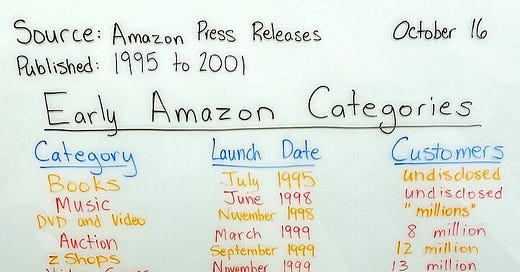 Source: Amazon Press Releases October 16
Published: 1995 to 2001
Early Amazon Categories
Category Launch Date Customers
Books July 1995 undisclosed
Music June 1998 undisclosed
DVD and Video November 1998 "millions"
Auction March 1999 8 million
z Shops September 1999 12 million
Video Games November 1999 13 million